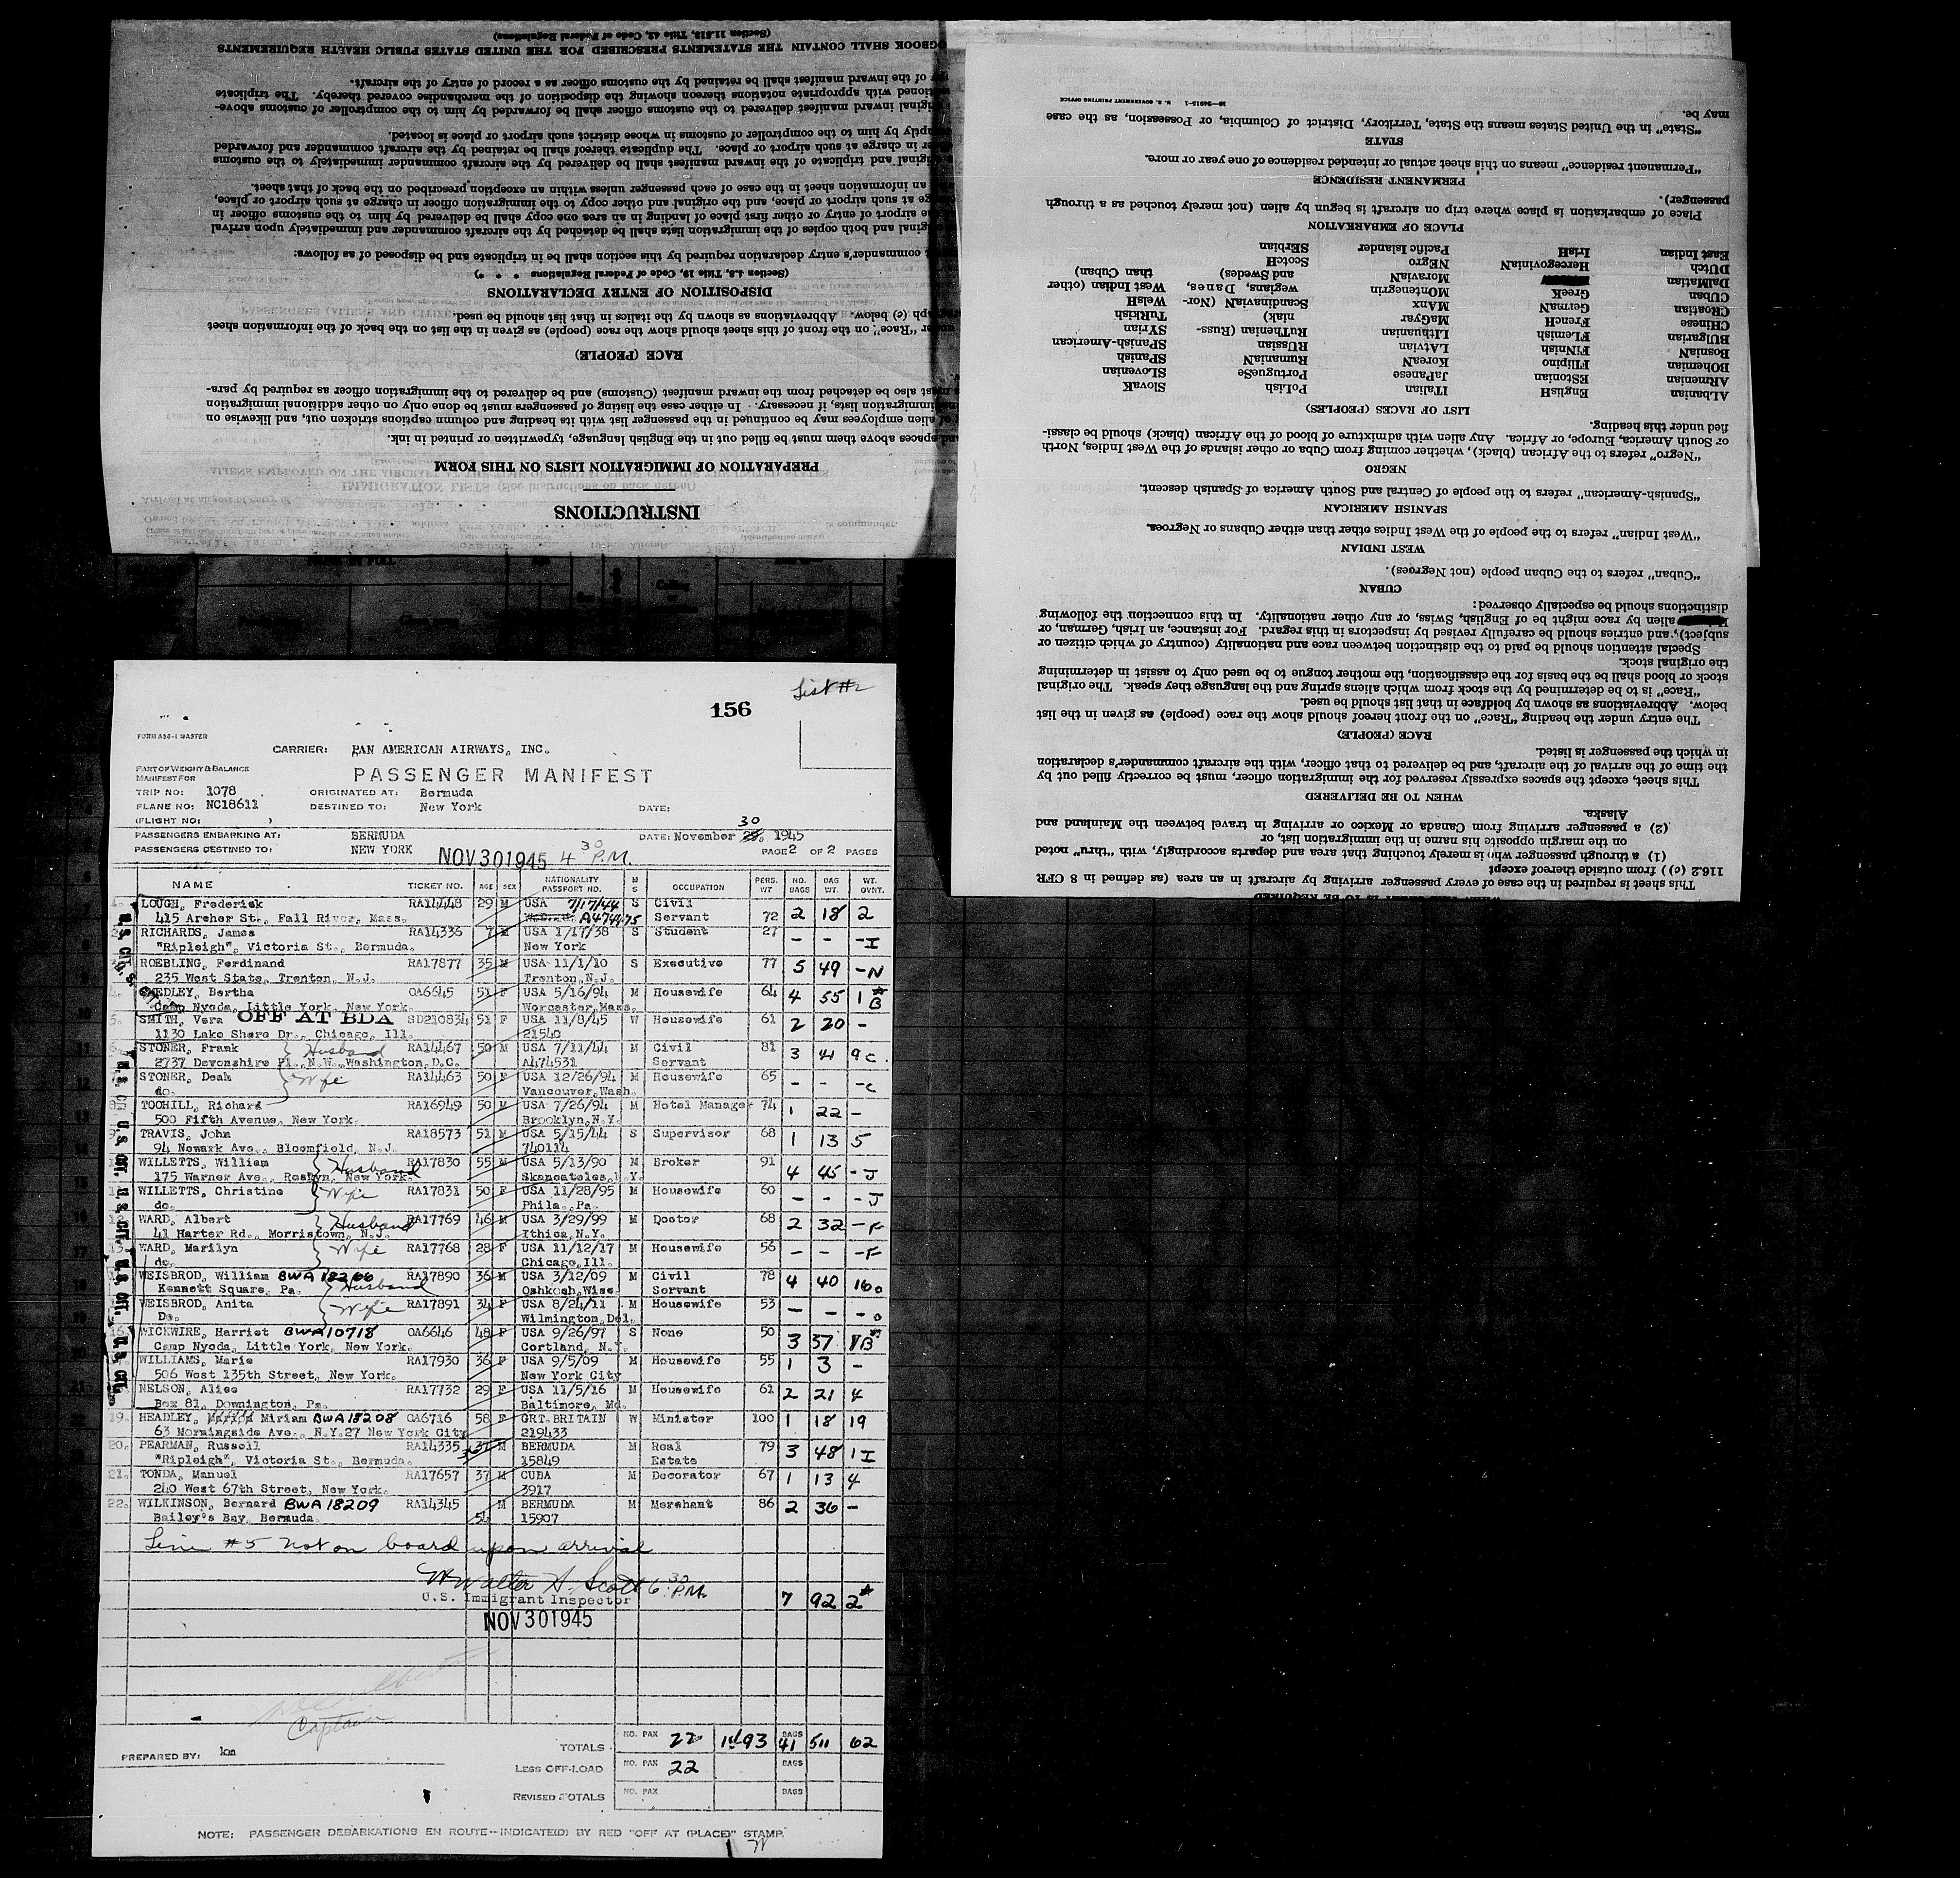 List #2
156
FORM A30-1 MASTER
CARRIER: PAN AMERICAN AIRWAYS, INC.
PART OF WEIGHT & BALANCE
MANIFEST FOR
PASSENGER MANIFEST
TRIP NO: 1078 ORIGINATED AT: Bermuda
PLANE NO: NC18611 DESTINED TO: New York DATE:
(FLIGHT NO: )
30
PASSENGERS EMBARKING AT: BERMUDA DATE: November 1945
PASSENGERS DESTINED TO: NEW YORK NOV 30 1945 4 30 P.M. PAGE 2 OF 2 PAGES
NAME TICKET NO. AGE SEX NATIONALITY PASSPORT NO. M S OCCUPATION PERS. WT NO. BAGS BAG WT. WT. OVNT.
LOUGH, Frederick RA14448 29 M USA 7/17/44 S Civil
415 Archer St., Fall River, Mass. A474475 Servant 72 2 18 2
RICHARDS, James RA14336 7 M USA 1/17/38 S Student 27 - - - I
"Ripleigh", Victoria St., Bermuda. New York
ROEBLING, Ferdinand RA17877 35 M USA 11/1/10 S Executive 77 5 49 - N
235 West State, Trenton, N.J. Trenton, N.J.
Bertha OA6645 51 F USA 5/16/94 M Housewife 64 4 55 1 B*
Camp Nyoda, Little York, New York. Worcester, Mass.
5. SMITH, Vera OFF AT BDA SD210834 51 F USA 11/8/45 W Housewife 61 2 20 -
1130 Lake Shore Dr., Chicago, Ill. 21540
STONER, Frank Husband RA14467 50 M USA 7/11/44 M Civil 81 3 41 9 C.
2737 Devonshire Pl., N.W., Washington, D.C. A474531 Servant
STONER, Deah Wife RA14463 50 F USA 12/26/94 M Housewife 65 - - - C
do. Vancouver, Wash.
TOOHILL, Richard RA16949 50 M USA 7/26/94 M Hotel Manager 74 1 22 -
500 Fifth Avenue, New York. Brooklyn, N.Y.
TRAVIS, John RA18573 51 M USA 5/15/44 S Supervisor 68 1 13 5
94 Newark Ave., Bloomfield, N.J. 740114
WILLETTS, William Husband RA17830 55 M USA 5/13/90 M Broker 91 4 45 - J
175 Warner Ave., Roslyn, New York. Skaneateles, N.Y.
WILLETTS, Christine Wife RA17831 50 F USA 11/28/95 M Housewife 60 - - - J
do. Phila., Pa.
12. WARD, Albert Husband RA17769 46 M USA 3/29/99 M Doctor 68 2 32 - F
41 Harter Rd., Morristown, N.J. Ithica, N.Y.
13. WARD, Marilyn Wife RA17768 28 F USA 11/12/17 M Housewife 56 - - - F
do. Chicago, Ill.
WEISBROD, William BWA 18206 Husband RA17890 36 M USA 3/12/09 M Civil 78 4 40 16 O
Kennett Square, Pa. Oshkosh, Wisc. Servant
WEISBROD, Anita Wife RA17891 34 F USA 8/24/11 M Housewife 53 - - - O
Do. Wilmington, Del.
WICKWIRE, Harriet BWA10718 OA6646 48 F USA 9/26/97 S None 50 3 37 8 B*
Camp Nyoda, Little York, New York. Cortland, N.Y.
WILLIAMS, Marie RA17930 36 F USA 9/5/09 M Housewife 55 1 3 -
506 West 135th Street, New York. New York City
NELSON, Alice RA17732 29 F USA 11/5/16 M Housewife 61 2 21 4
Box 81, Downington, Pa. Baltimore, Md.
19. HEADLEY, Miriam BWA 18208 OA6716 58 F GRT. BRITAIN W Minister 100 1 18 19
63 Morningside Ave., N.Y. 27 New York City 219433
20. PEARMAN, Russell RA14335 37 M BERMUDA M Real 79 3 48 1 I
"Ripleigh", Victoria St., Bermuda. 15849 Estate
21. TONDA, Manuel RA17657 37 M CUBA M Decorator 67 1 13 4
240 West 67th Street, New York. 3917
22. WILKINSON, Bernard BWA 18209 RA14345 M BERMUDA M Merchant 86 2 36 -
Bailey's Bay, Bermuda. 54 15907
U.S. CIT.
Line #5 not on board upon arrival
Walter A. Scott 6 30 P.M.
U.S. Immigrant Inspector 7 92 2*
NOV 30 1945
Captain
TOTALS NO. PAX 22 1493 BAGS 41 511 62
PREPARED BY: km
LESS OFF-LOAD NO. PAX 22 BAGS
REVISED TOTALS NO. PAX BAGS
NOTE: PASSENGER DEBARKATIONS EN ROUTE--INDICATE(D) BY RED "OFF AT (PLACE)" STAMP.
INSTRUCTIONS
PREPARATION OF IMMIGRATION LISTS ON THIS FORM
and spaces above them must be filled out in the English language, typewritten or printed in ink.
of alien employees may be continued in the passenger list with its heading and column captions stricken out, and likewise on
immigration lists, if necessary. In either case the listing of passengers must be done only on other additional immigration
must also be detached from the inward manifest (Customs) and be delivered to the immigration officer as required by para-
RACE (PEOPLE)
under "Race" on the front of this sheet should show the race (people) as given in the list on the back of the information sheet
(c) below. Abbreviations as shown by the italics in that list should be used.
DISPOSITION OF ENTRY DECLARATIONS
(Section 4.8, Title 19, Code of Federal Regulations * * *)
commander's entry declaration required by this section shall be in triplicate and be disposed of as follows:
original and both copies of the immigration lists shall be detached by the aircraft commander and immediately upon arrival
airport of entry or other first place of landing in an area one copy shall be delivered by him to the customs officer in
at such airport or place, and the original and other copy to the immigration officer in charge at such airport or place,
an information sheet in the case of each passenger unless within an exception prescribed on the back of that sheet.
original and triplicate of the inward manifest shall be delivered by the aircraft commander immediately to the customs
in charge at such airport or place. The duplicate thereof shall be retained by the aircraft commander and forwarded
by him to the comptroller of customs in whose district such airport or place is located.
original inward manifest delivered to the customs officer shall be forwarded by him to the comptroller of customs above-
with appropriate notations thereon showing the disposition of the merchandise covered thereby. The triplicate
of the inward manifest shall be retained by the customs officer as a record of entry of the aircraft.
LOGBOOK SHALL CONTAIN THE STATEMENTS PRESCRIBED FOR THE UNITED STATES PUBLIC HEALTH REQUIREMENTS
(Section 11.513, Title 42, Code of Federal Regulations)
WHEN THIS SHEET IS TO BE REQUIRED
This sheet is required in the case of every passenger arriving by aircraft in an area (as defined in 8 CFR
116.2 (c)) from outside thereof except
(1) a through passenger who is merely touching that area and departs accordingly, with "thru" noted
on the margin opposite his name in the immigration list, or
(2) a passenger arriving from Canada or Mexico or arriving in travel between the Mainland and
Alaska.
WHEN TO BE DELIVERED
This sheet, except the spaces expressly reserved for the immigration officer, must be correctly filled out by
the time of the arrival of the aircraft, and be delivered to that officer, with the aircraft commander's declaration
in which the passenger is listed.
RACE (PEOPLE)
The entry under the heading "Race" on the front hereof should show the race (people) as given in the list
below. Abbreviations as shown by boldface in that list should be used.
"Race" is to be determined by the stock from which aliens spring and the language they speak. The original
stock or blood shall be the basis for the classification, the mother tongue to be used only to assist in determining
the original stock.
Special attention should be paid to the distinction between race and nationality (country of which citizen or
subject), and entries should be carefully revised by inspectors in this regard. For instance, an Irish, German, or
alien by race might be of English, Swiss, or any other nationality. In this connection the following
distinctions should be especially observed:
CUBAN
"Cuban" refers to the Cuban people (not Negroes).
WEST INDIAN
"West Indian" refers to the people of the West Indies other than either Cubans or Negroes.
SPANISH AMERICAN
"Spanish-American" refers to the people of Central and South America of Spanish descent.
NEGRO
"Negro" refers to the African (black), whether coming from Cuba or other islands of the West Indies, North
or South America, Europe, or Africa. Any alien with admixture of blood of the African (black) should be classi-
fied under this heading.
LIST OF RACES (PEOPLES)
Albanian EnglisH ITalian PoLish SlovaK
ARmenian EStonian JaPanese PortugueSe SLOvenian
BOhemian FIlipino KoreaN RumaniaN SPanish
BosniaN FINnish LAtvian RUssian SPanish-American
BULgarian FLemish LIthuanian RuTHenian (Russ- SYrian
CHInese FrencH MaGyar niak) TuRkish
CRoatian GermaN MAnx ScandinaviaN (Nor- WelsH
CUban GreeK MOntenegrin wegians, Danes, West Indian (other
DalMatian MoraviaN and Swedes) than Cuban)
DUtch HercegovinaN NEgro ScotcH
East Indian IrisH Pacific Islander SErbian
PLACE OF EMBARKATION
Place of embarkation is place where trip on aircraft is begun by alien (not merely touched as a through
passenger).
PERMANENT RESIDENCE
"Permanent residence" means on this sheet actual or intended residence of one year or more.
STATE
"State" in the United States means the State, Territory, District of Columbia, or Possession, as the case
may be.
16—24915-1 U. S. GOVERNMENT PRINTING OFFICE